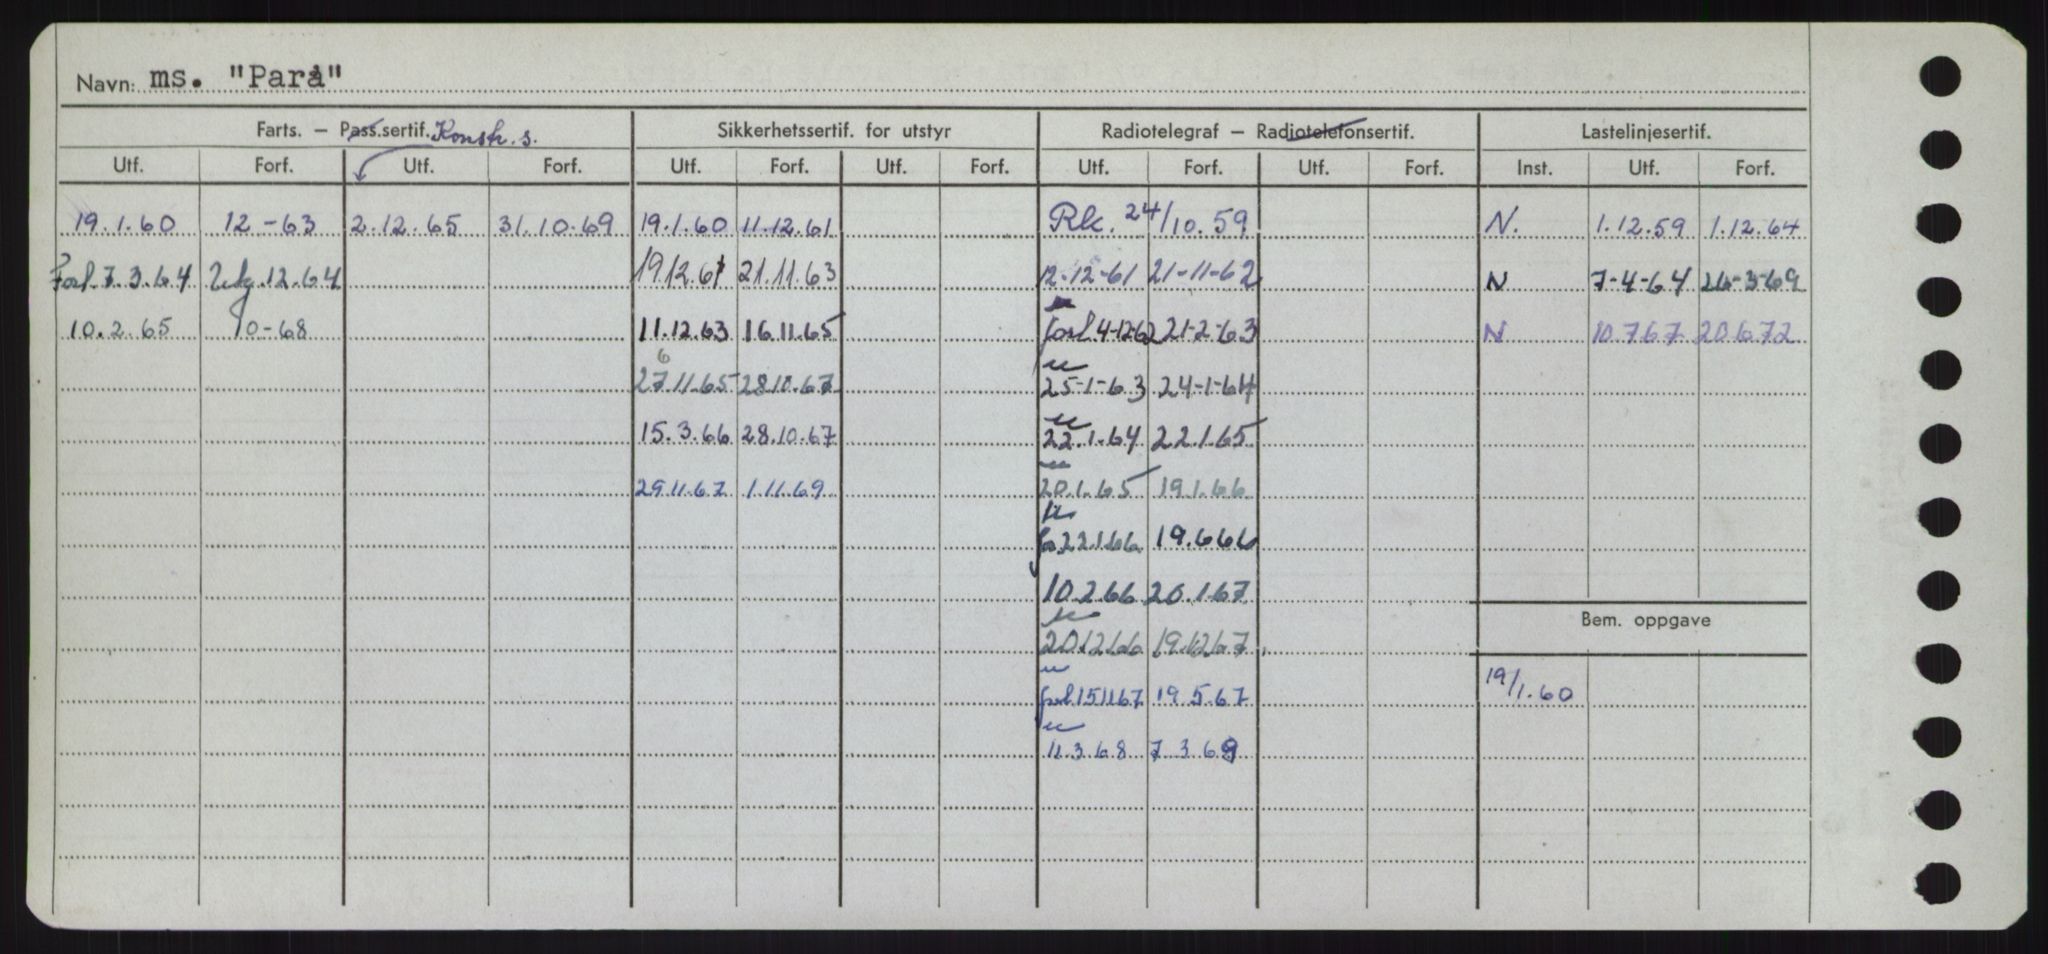 Navn: ms. "Parå"
Farts. — Pass.sertif. Konstr. s. Sikkerhetssertif. for utstyr Radiotelegraf — Radiotelefonsertif. Lastelinjesertif.
Utf. Forf. Utf. Forf. Utf. Forf. Utf. Forf. Utf. Forf. Utf. Forf. Inst. Utf. Forf.
19.1.60 12-63 2.12.65 31.10.69 19.1.60 11.12.61 Rk. 24/10.59 N. 1.12.59 1.12.64
Forl. 7.3.64 Utg. 12.64 19.12.61 21.11.63 12-12-61 21-11-62 N 7-4-64 26-3-69
10.2.65 10-68 11.12.63 16.11.65 forl. 4-12-62 21-2-63 N 10.7.67 20.6.72
6
27.11.65 28.10.67 25-1-63 24-1-64
15.3.66 28.10.67 22.1.64 22.1.65
29.11.67 1.11.69 20.1.65 19.1.66
22.1.66 19.6.66
10.2.66 20.1.67
Bem. oppgave
20.12.66 19.12.67
19/1.60
forl. 15.11.67 19.5.67
11.3.68 7.3.69